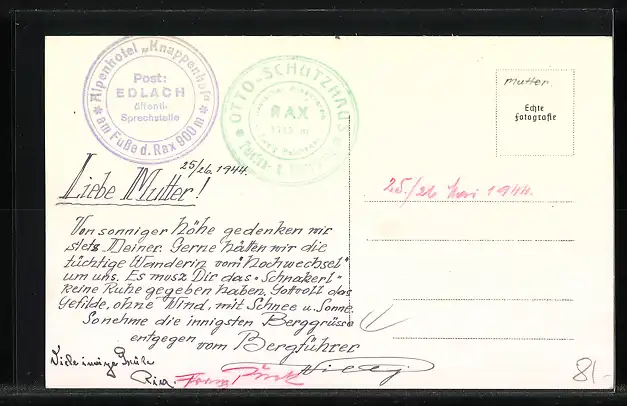 Alpenhotel „Knappenhof"
Post:
EDLACH
öffentl.
Sprechstelle
am Fuße d. Rax 900 m
OTTO-SCHUTZHAUS
RAX
Mutter
Echte
Fotografie
25/26. 1944.
Liebe Mutter!
25./26 Mai 1944.
Von sonniger Höhe gedenken wir
stets Deiner. Gerne hätten wir die
tüchtige Wanderin vom "Hochwechsel"
um uns. Es musz Dir das "Schnakerl"
keine Ruhe gegeben haben. Gottvoll das
Gefilde, ohne Wind, mit Schnee u. Sonne.
So nehme die innigsten Berggrüsse
entgegen vom Bergführer
Viele innige Grüße
81.-